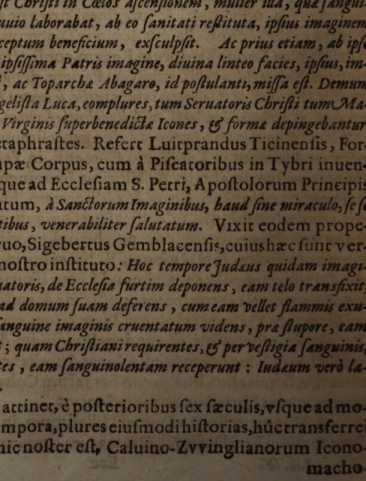 st Christi in Cœlos ascensionem, mulier illa, quæ sangui-
uuio laborabat, ab eo sanitati restituta, ipsius imaginem
ceptum beneficium, exsculpsit. Ac prius etiam, ab ipso
ipsissima Patris imagine, diuina linteo facies, ipsius, im-
, ac Toparchæ Abagaro, id postulanti, missa est. Demum
gelista Luca, complures, tum Seruatoris Christi tum Ma-
Virginis superbenedictæ Icones, & formæ depingebantur
taphrastes. Refert Luitprandus Ticinensis, For-
pæ Corpus, cum à Piscatoribus in Tybri inuen-
que ad Ecclesiam S. Petri, Apostolorum Principis
atum, à Sanctorum Imaginibus, haud sine miraculo, se se
tibus, venerabiliter salutatum. Vixit eodem prope
uo, Sigebertus Gemblacensis, cuius hæc sunt ver-
nostro instituto: Hoc tempore Judæus quidam imagi-
uatoris, de Ecclesia furtim deponens, eam telo transfixit,
ad domum suam deferens, cum eam vellet flammis exu-
sanguine imaginis cruentatum videns, præ stupore, eam
t; quam Christiani requirentes, & per vestigia sanguinis,
tes, eam sanguinolentam receperunt: Iudæum verò la-
.
attinet, è posterioribus sex sæculis, vsque ad mo-
mpora, plures eiusmodi historias, húc transferre
hic noster est, Caluino-Zvvinglianorum Icono-
macho-